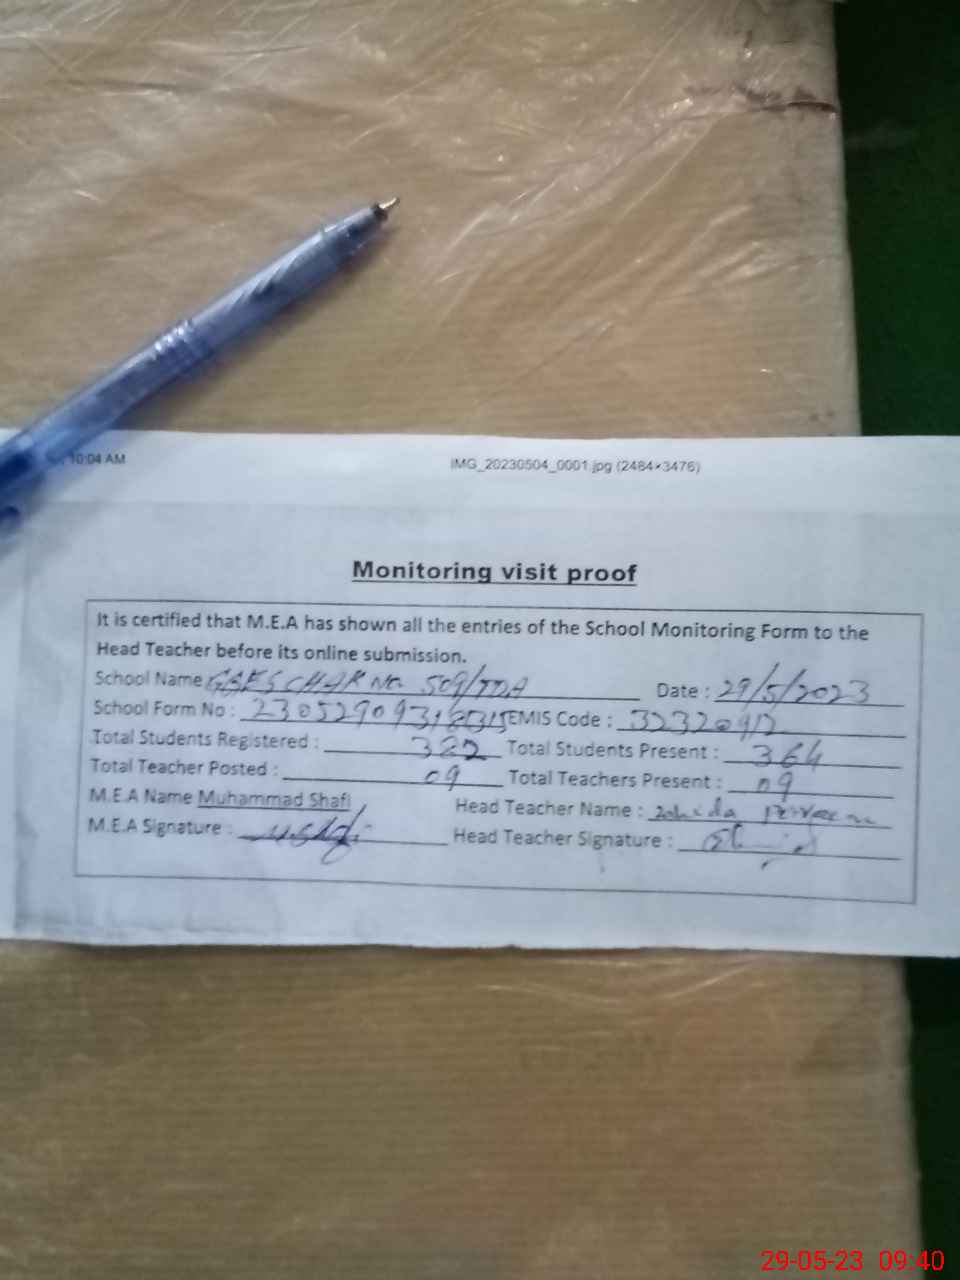 10:04 AM IMG_20230504_0001.jpg (2484×3476)
Monitoring visit proof
It is certified that M.E.A has shown all the entries of the School Monitoring Form to the
Head Teacher before its online submission.
School Name CHAK No. 509/TDA Date : 29/5/2023
School Form No : EMIS Code : 32320912
Total Students Registered : 382 Total Students Present : 364
Total Teacher Posted : 09 Total Teachers Present : 09
M.E.A Name Muhammad Shafi Head Teacher Name : Zahida Perveen
M.E.A Signature : Head Teacher Signature :
29-05-23 09:40